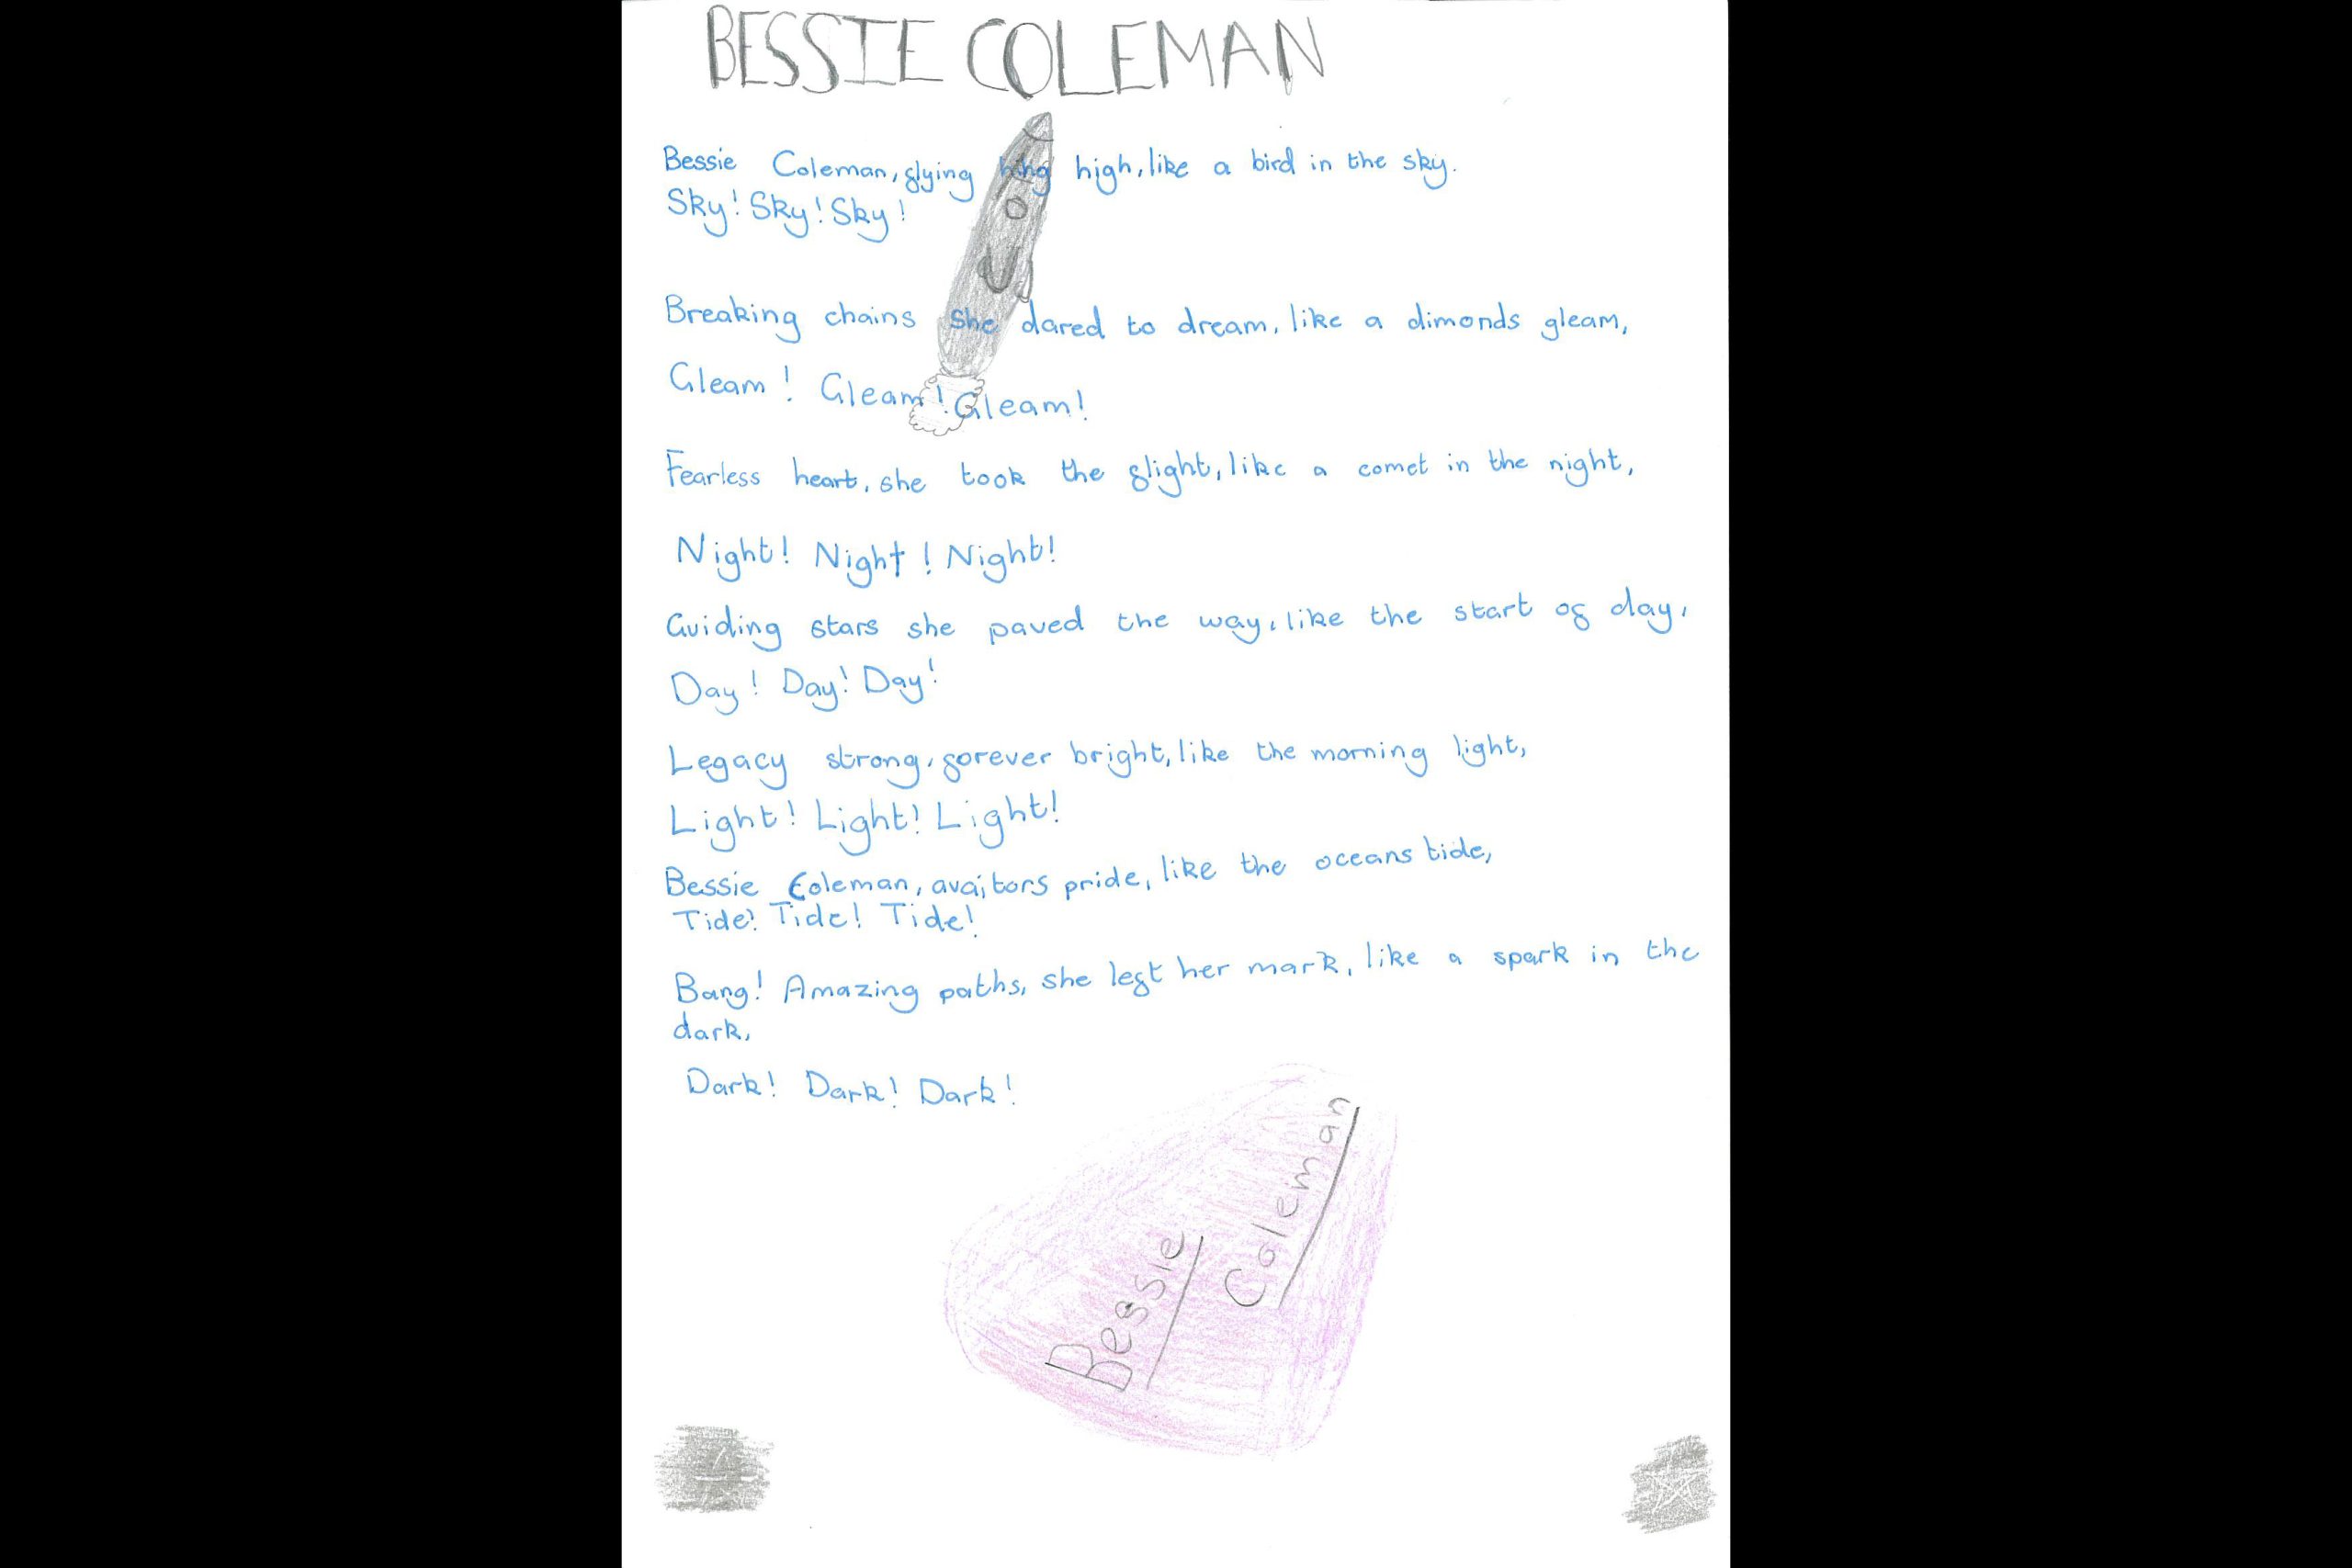 BESSIE COLEMAN
Bessie Coleman, flying high, like a bird in the sky.
Sky! Sky! Sky!
Breaking chains she dared to dream, like a dimonds gleam,
Gleam! Gleam! Gleam!
Fearless heart, she took the flight, like a comet in the night,
Night! Night! Night!
Guiding stars she paved the way, like the start of day,
Day! Day! Day!
Legacy strong, forever bright, like the morning light,
Light! Light! Light!
Bessie Coleman, avaitors pride, like the oceans tide,
Tide! Tide! Tide!
Bang! Amazing paths, she left her mark, like a spark in the
dark,
Dark! Dark! Dark!
Bessie
Coleman